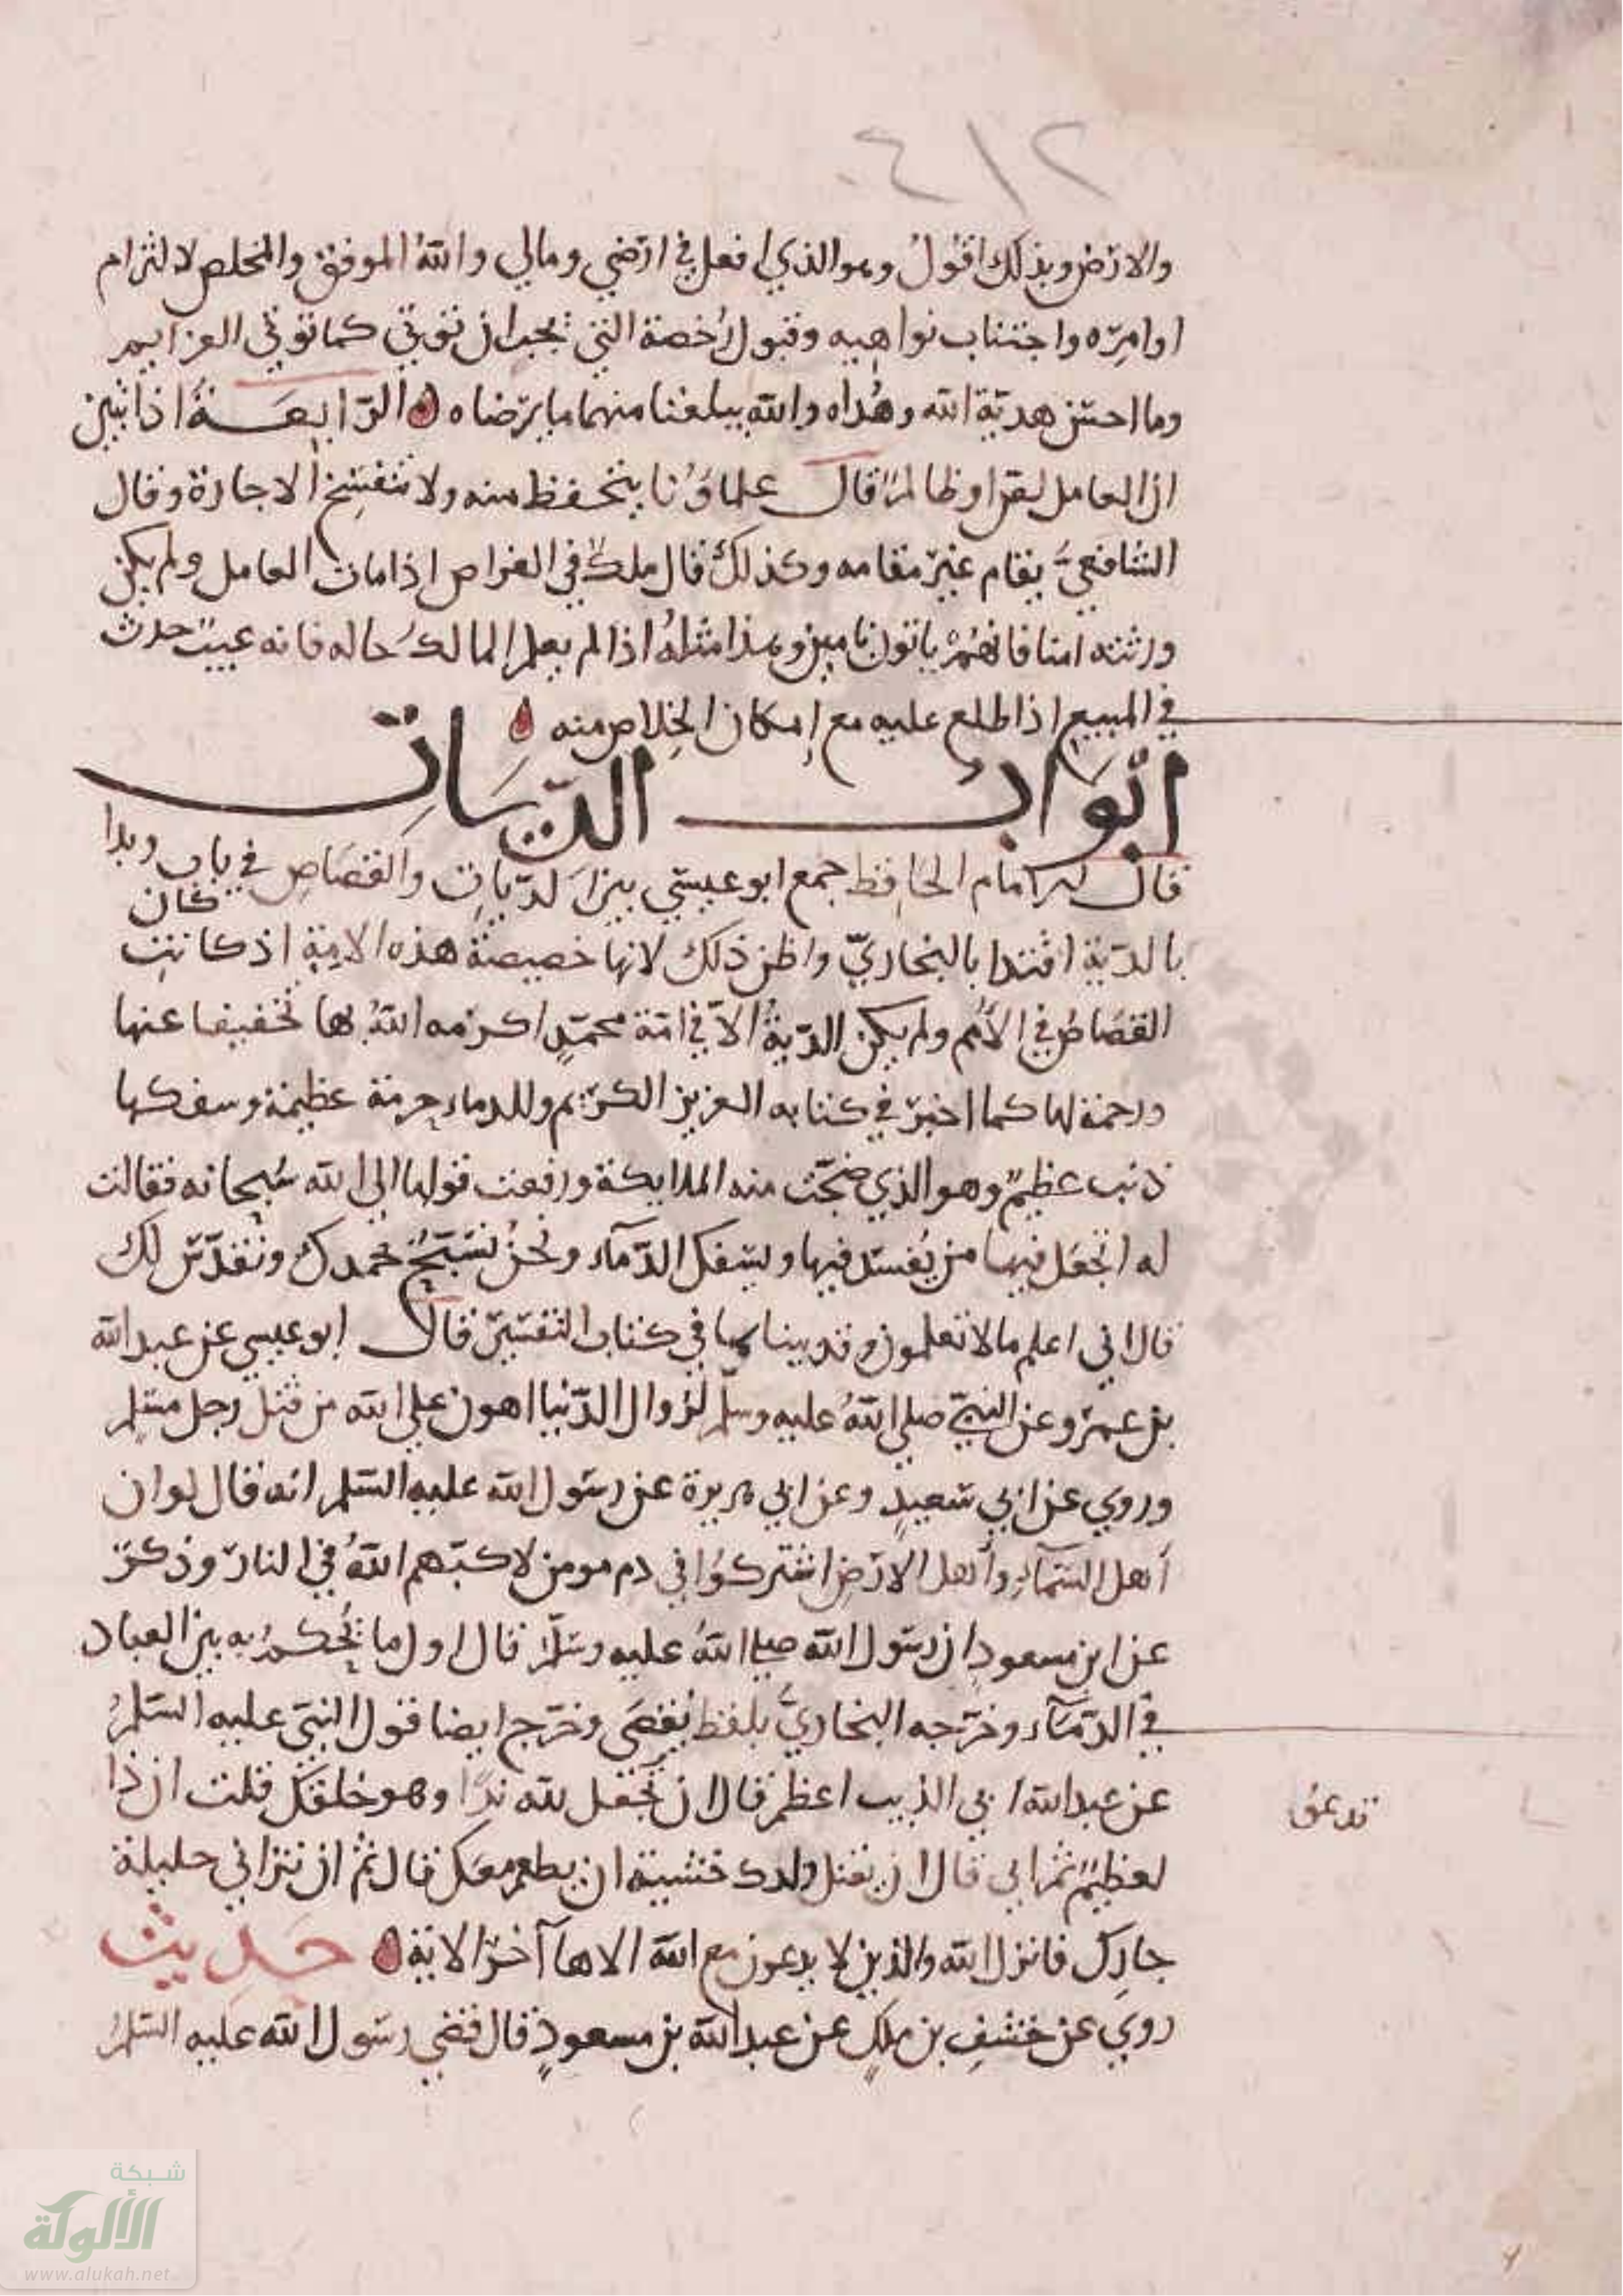 ٤١٢
والارض وبذلك اقول وهو الذي افعل في ارضي ومالي والله الموفق والمخلص لالتزام
اوامره واجتناب نواهيه وقبول رخصة التي يجب ان توتي كما توتي العزايم
وما احسن هدية الله وهداه والله يبلغنا منهما ما يرضاه الرابعة اذا تبين
ان العامل لصا او ظالما قال علماؤنا يتحفظ منه ولا تنفسخ الاجارة وقال
الشافعي يقام غير مقامه وكذلك قال ملك في القراض اذا مات العامل ولم يكن
ورثته امنا فانهم ياتون بامين وهذا مثله اذا لم يعلم المالك حاله فانه عيب حدث
في المبيع اذا طلع عليه مع إمكان الخلاص منه
ابواب الديات
قال الامام الحافظ جمع ابو عيسى بين الديات والقصاص في باب وبدا
بالدية اقتدا بالبخاري واظن ذلك لانها خصيصة هذه الامة اذ كانت كان
القصاص في الأمم ولم يكن الدية الا في امة محمد اكرمه الله بها تخفيفا عنها
ورحمة لها كما اخبر في كتابه العزيز الكريم وللدماء حرمة عظيمة وسفكها
ذنب عظيم وهو الذي ضجت منه الملايكة ورفعت قولها الى الله سبحانه فقالت
له اتجعل فيها من يفسد فيها ويسفك الدمآء ونحن نسبح بحمدك ونقدس لك
قال اني اعلم ما لا تعلمون وقد بيناها في كتاب التفسير قال ابو عيسى عن عبد الله
بن عمرو عن النبي صلى الله عليه وسلم لزوال الدنيا اهون على الله من قتل رجل مسلم
وروي عن ابي سعيد وعن ابي هريرة عن رسول الله عليه السلم انه قال لو ان
أهل السمآء وأهل الارض اشتركوا في دم مومن لاكبهم الله في النار وذكر
عن ابن مسعود ان رسول الله صلى الله عليه وسلم قال اول ما يحكم به بين العباد
في الدمآء وخرجه البخاري بلفظ يقضى وخرج ايضا قول النبي عليه السلم
عن عبد الله اي الذنب اعظم قال ان تجعل لله ندا وهو خلقك قلت ان ذا
تدعى
لعظيم ثم اي قال ان تقتل ولدك خشية ان يطعم معك قال ثم ان تزاني حليلة
جارك فانزل الله والذين لا يدعون مع الله الاها آخر الاية حديث
روي عن خشف بن ملك عن عبد الله بن مسعود قال قضى رسول الله عليه السلم
شبكة
الألوكة
www.alukah.net